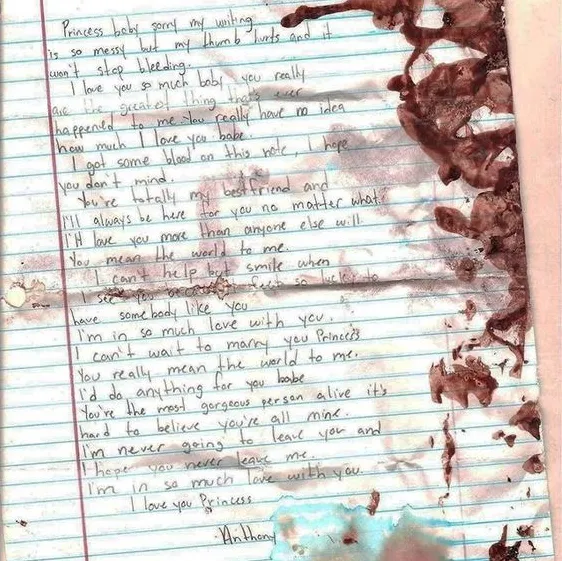 Princess baby sorry my writing
is so messy but my thumb hurts and it
won't stop bleeding.
I love you so much baby you really
are the greatest thing that's ever
happened to me. You really have no idea
how much I love you babe.
I got some blood on this note I hope
you don't mind.
You're totally my best friend and
I'll always be here for you no matter what.
I'll love you more than anyone else will
You mean the world to me.
I can't help but smile when
I see you because feel so lucky to
have somebody like you
I'm in so much love with you.
I can't wait to marry you Princess
You really mean the world to me.
I'd do anything for you babe
You're the most gorgeous person alive it's
hard to believe you're all mine.
I'm never going to leave you and
I hope you never leave me.
I'm in so much love with you.
I love you Princess
Anthony